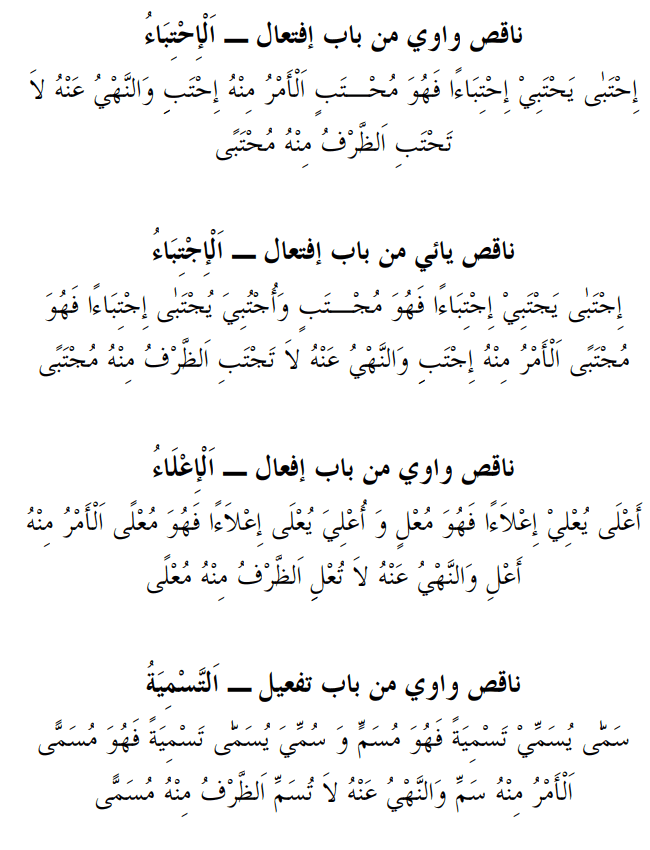 ناقص واوي من باب إفتعال ــ اَلْإِحْتِبَاءُ
إِحْتَبٰى يَحْتَبِيْ إِحْتِبَاءًا فَهُوَ مُحْـــتَبٍ اَلْأَمْرُ مِنْهُ إِحْتَبِ وَالنَّهْيُ عَنْهُ لاَ
تَحْتَبِ اَلظَّرْفُ مِنْهُ مُحْتَبًى
ناقص يائي من باب إفتعال ــ اَلْإِجْتِبَاءُ
إِجْتَبٰى يَجْتَبِيْ إِجْتِبَاءًا فَهُوَ مُجْـــتَبٍ وَأُجْتُبِيَ يُجْتَبٰى إِجْتِبَاءًا فَهُوَ
مُجْتَبًى اَلْأَمْرُ مِنْهُ إِجْتَبِ وَالنَّهْيُ عَنْهُ لاَ تَجْتَبِ اَلظَّرْفُ مِنْهُ مُجْتَبًى
ناقص واوي من باب إفعال ــ اَلْإِعْلَاءُ
أَعْلَى يُعْلِيْ إِعْلاَءًا فَهُوَ مُعْلٍ وَ أُعْلِيَ يُعْلَى إِعْلاَءًا فَهُوَ مُعْلًى اَلْأَمْرُ مِنْهُ
أَعْلِ وَالنَّهْيُ عَنْهُ لاَ تُعْلِ اَلظَّرْفُ مِنْهُ مُعْلًى
ناقص واوي من باب تفعيل ــ اَلتَّسْمِيَةُ
سَمّٰى يُسَمِّيْ تَسْمِيَةً فَهُوَ مُسَمٍّ وَ سُمِّيَ يُسَمّٰى تَسْمِيَةً فَهُوَ مُسَمًّى
اَلْأَمْرُ مِنْهُ سَمِّ وَالنَّهْيُ عَنْهُ لاَ تُسَمِّ اَلظَّرْفُ مِنْهُ مُسَمًّى